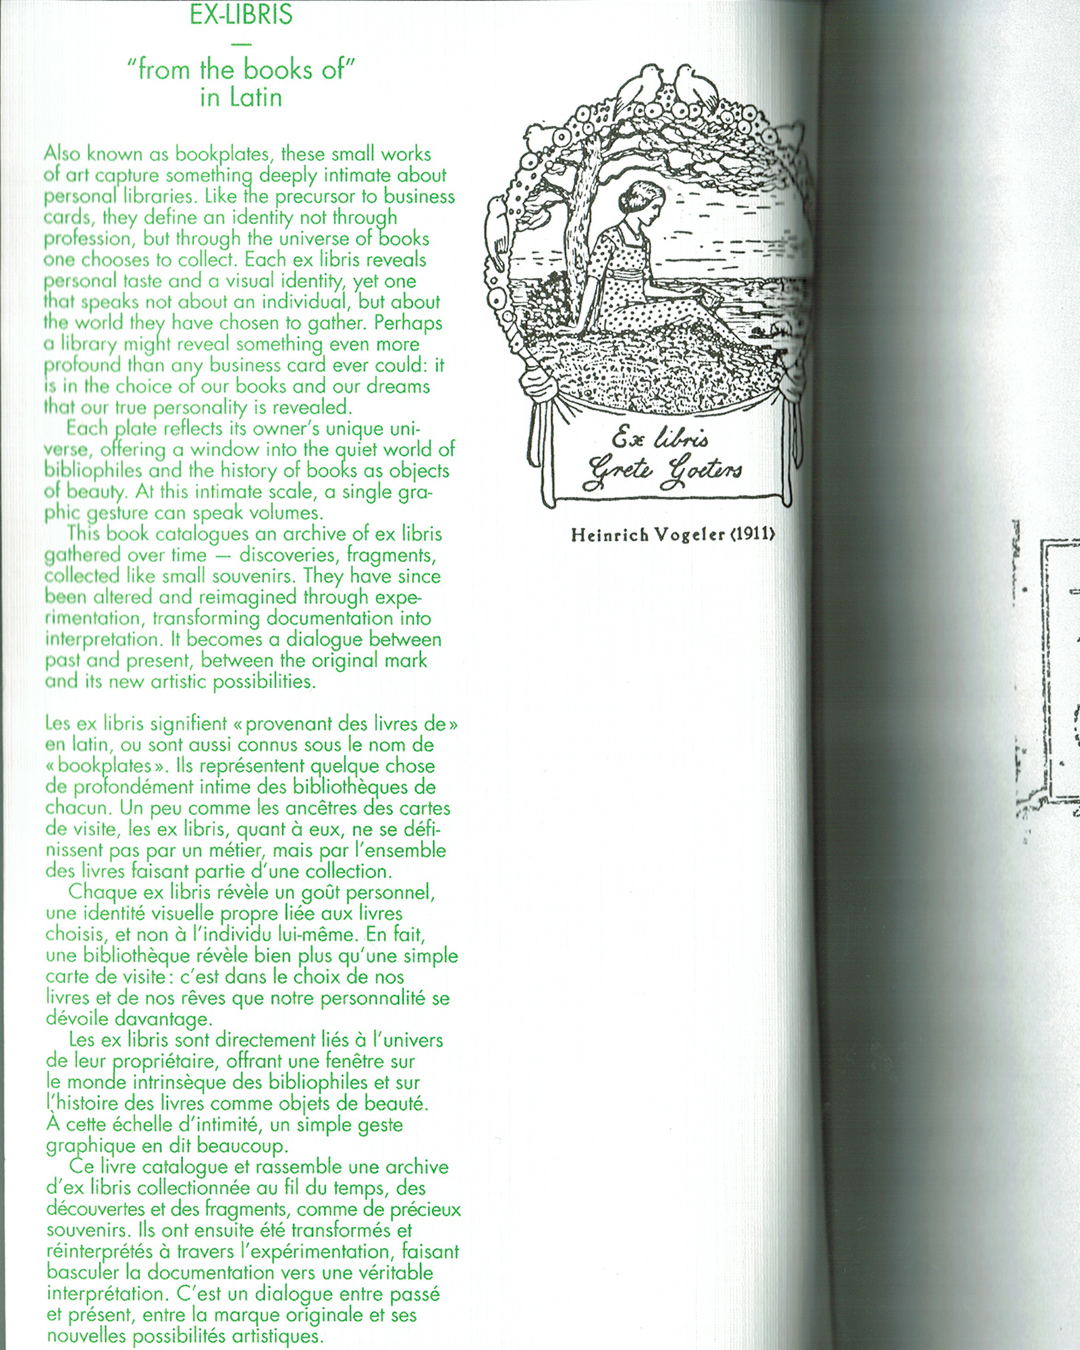 EX-LIBRIS
—
“from the books of”
in Latin
Also known as bookplates, these small works
of art capture something deeply intimate about
personal libraries. Like the precursor to business
cards, they define an identity not through
profession, but through the universe of books
one chooses to collect. Each ex libris reveals
personal taste and a visual identity, yet one
that speaks not about an individual, but about
the world they have chosen to gather. Perhaps
a library might reveal something even more
profound than any business card ever could: it
is in the choice of our books and our dreams
that our true personality is revealed.
Each plate reflects its owner’s unique uni-
verse, offering a window into the quiet world of
bibliophiles and the history of books as objects
of beauty. At this intimate scale, a single gra-
phic gesture can speak volumes.
This book catalogues an archive of ex libris
gathered over time — discoveries, fragments,
collected like small souvenirs. They have since
been altered and reimagined through expe-
rimentation, transforming documentation into
interpretation. It becomes a dialogue between
past and present, between the original mark
and its new artistic possibilities.
Les ex libris signifient « provenant des livres de »
en latin, ou sont aussi connus sous le nom de
« bookplates ». Ils représentent quelque chose
de profondément intime des bibliothèques de
chacun. Un peu comme les ancêtres des cartes
de visite, les ex libris, quant à eux, ne se défi-
nissent pas par un métier, mais par l’ensemble
des livres faisant partie d’une collection.
Chaque ex libris révèle un goût personnel,
une identité visuelle propre liée aux livres
choisis, et non à l’individu lui-même. En fait,
une bibliothèque révèle bien plus qu’une simple
carte de visite : c’est dans le choix de nos
livres et de nos rêves que notre personnalité se
dévoile davantage.
Les ex libris sont directement liés à l’univers
de leur propriétaire, offrant une fenêtre sur
le monde intrinsèque des bibliophiles et sur
l’histoire des livres comme objets de beauté.
À cette échelle d’intimité, un simple geste
graphique en dit beaucoup.
Ce livre catalogue et rassemble une archive
d’ex libris collectionnée au fil du temps, des
découvertes et des fragments, comme de précieux
souvenirs. Ils ont ensuite été transformés et
réinterprétés à travers l’expérimentation, faisant
basculer la documentation vers une véritable
interprétation. C’est un dialogue entre passé
et présent, entre la marque originale et ses
nouvelles possibilités artistiques.
Ex libris
Grete Goeters
Heinrich Vogeler (1911)